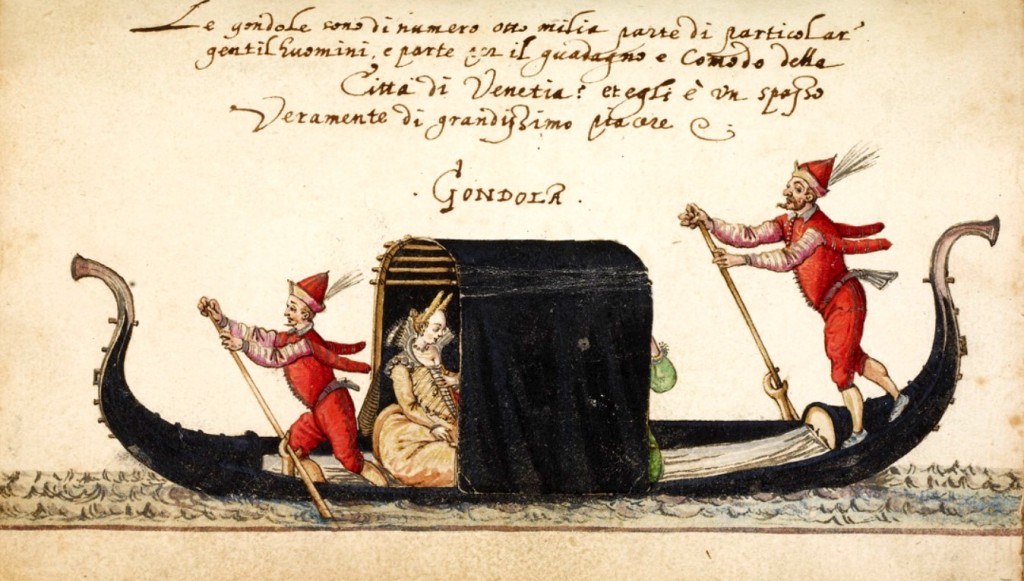 Le gondole sono di numero otto milia parte di particolar
gentilhuomini, e parte per il guadagno e Comodo della
Città di Venetia: et egli è un spasso
Veramente di grandissimo piacere
GONDOLA